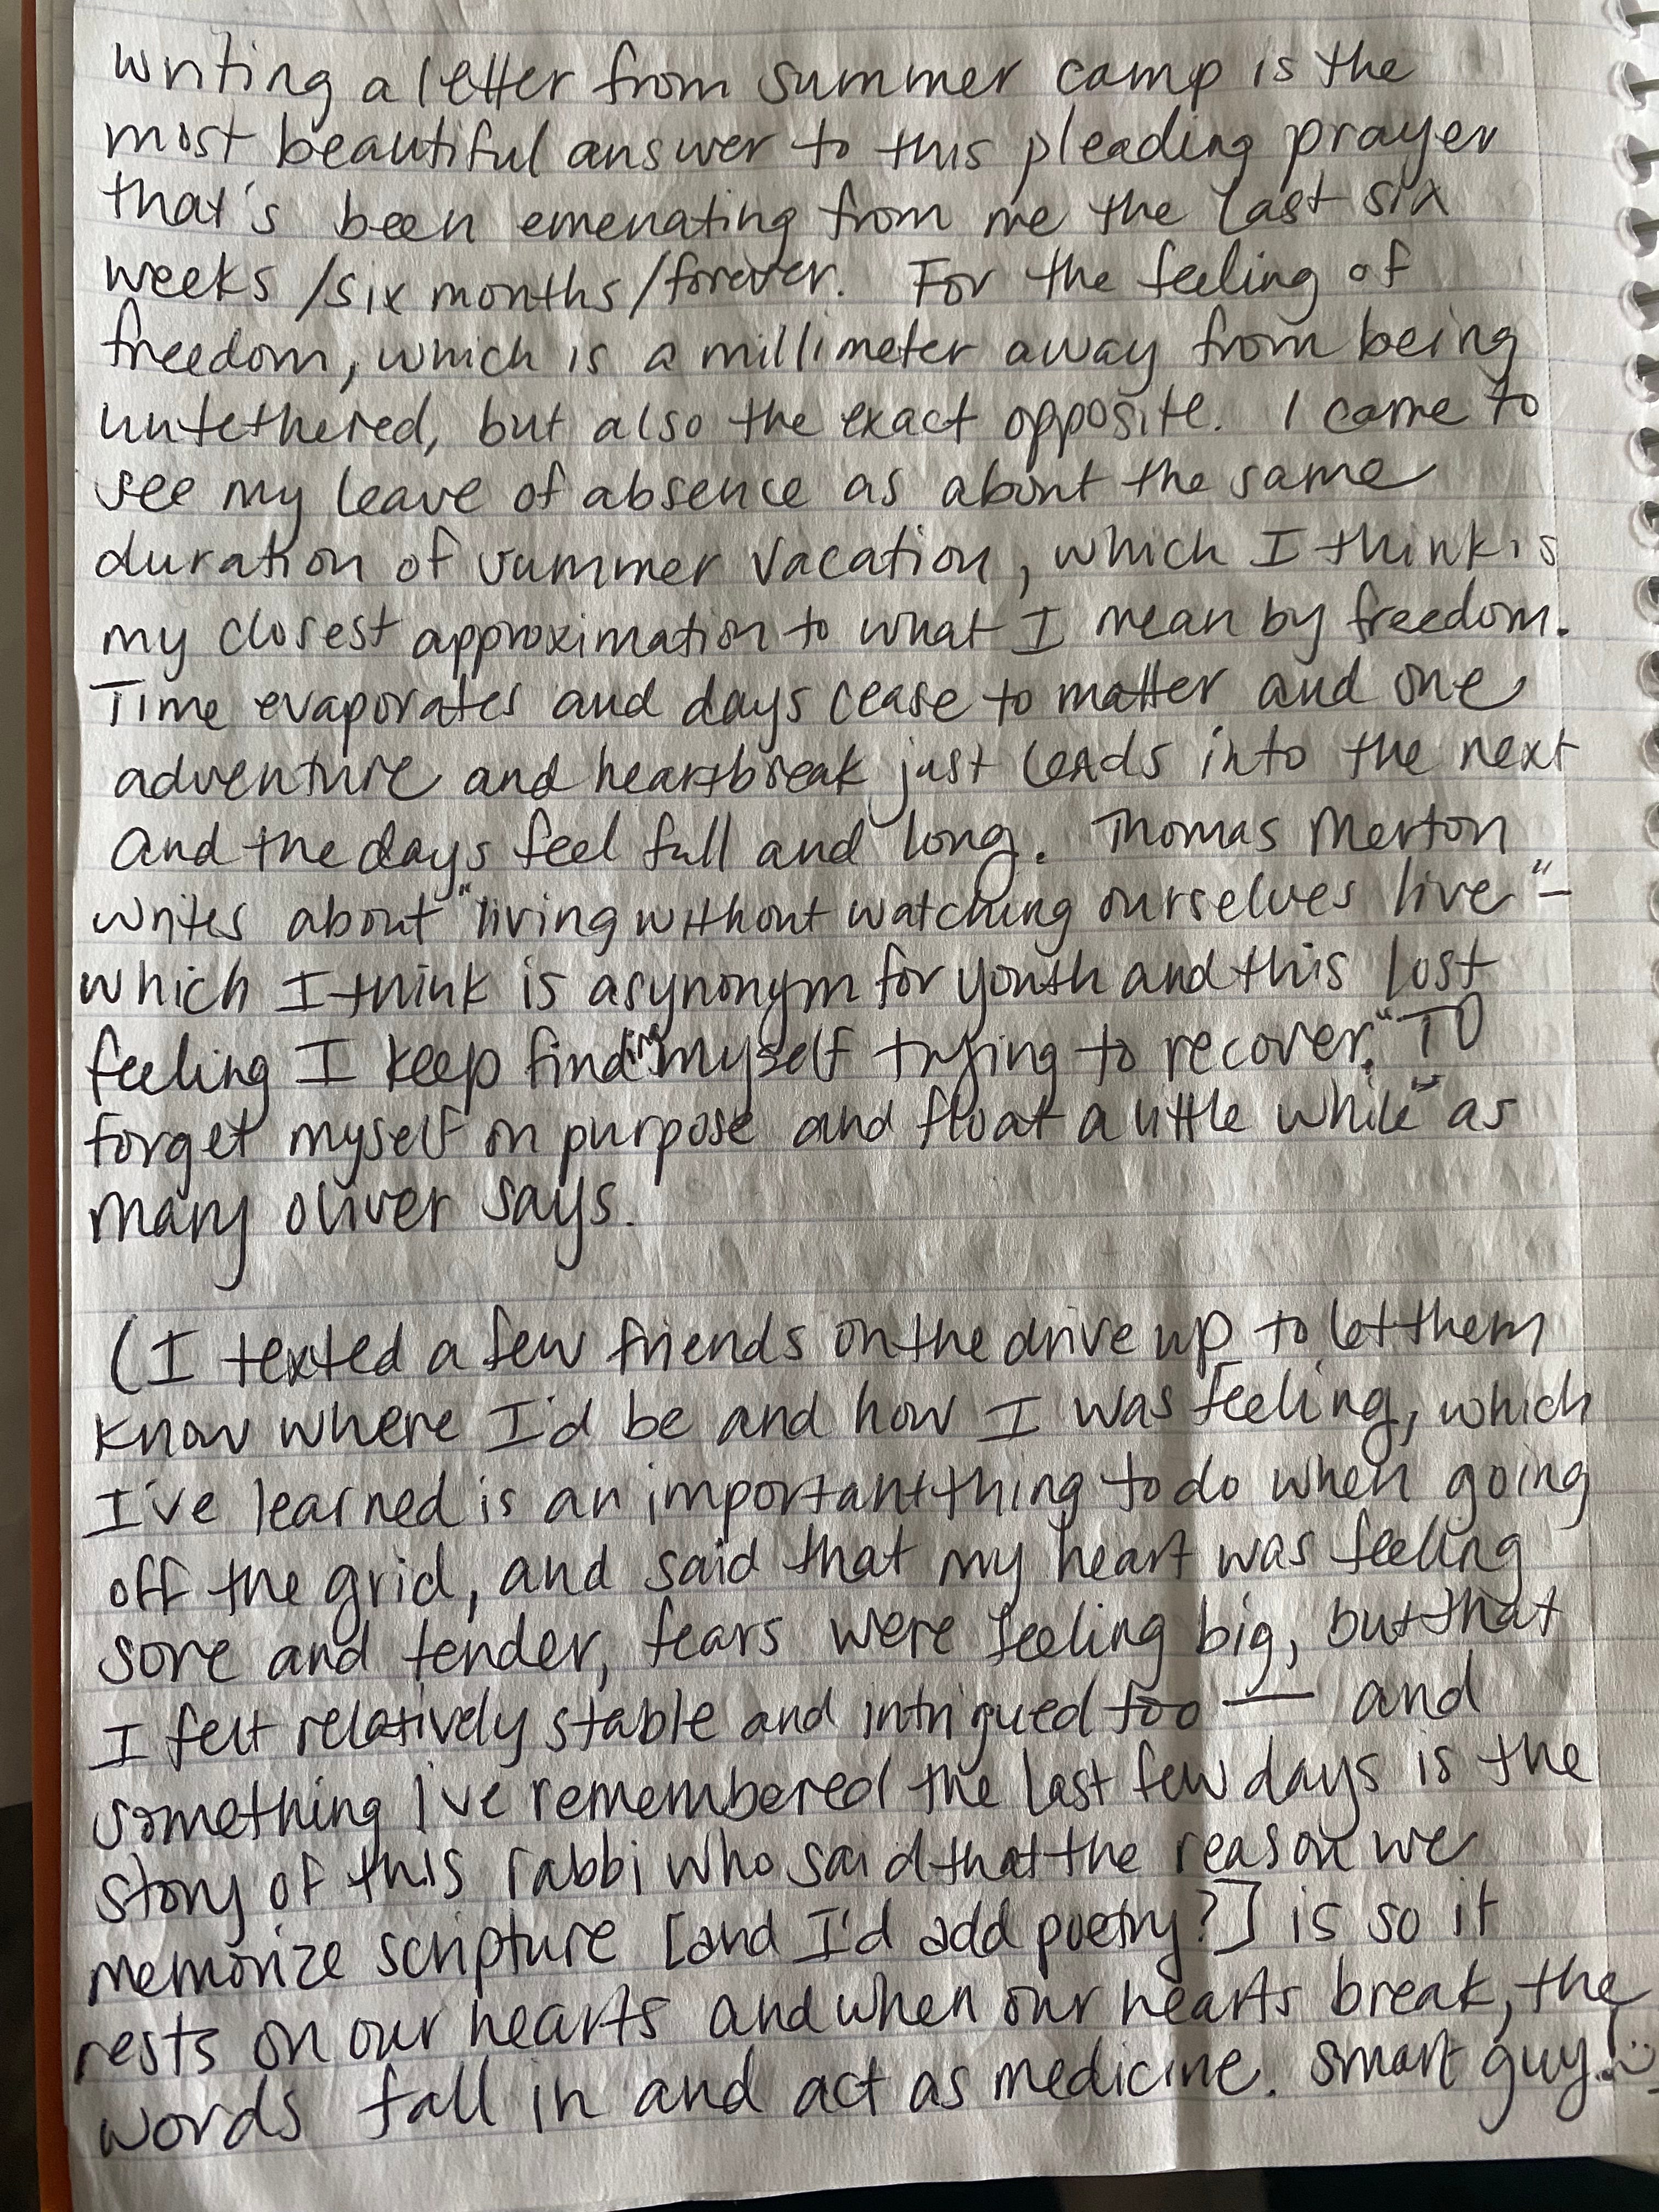 writing a letter from summer camp is the
most beautiful answer to this pleading prayer
that's been emenating from me the last six
weeks /six months/forever. For the feeling of
freedom, which is a millimeter away from being
untethered, but also the exact opposite. I came to
see my leave of absence as about the same
duration of summer vacation, which I think is
my closest approximation to what I mean by freedom.
Time evaporates and days cease to matter and one
adventure and heartbreak just leads into the next
and the days feel full and long. Thomas Merton
writes about "living without watching ourselves live" —
which I think is a synonym for youth and this lost
feeling I keep finding myself trying to recover. "TO
forget myself on purpose and float a little while" as
mary oliver says.
(I texted a few friends on the drive up to let them
know where I'd be and how I was feeling, which
I've learned is an important thing to do when going
off the grid, and said that my heart was feeling
sore and tender, fears were feeling big, but that
I felt relatively stable and intrigued too — and
something I've remembered the last few days is the
story of this rabbi who said that the reason we
memorize scripture [and I'd add poetry?] is so it
rests on our hearts and when our hearts break, the
words fall in and act as medicine. smart guy! :)